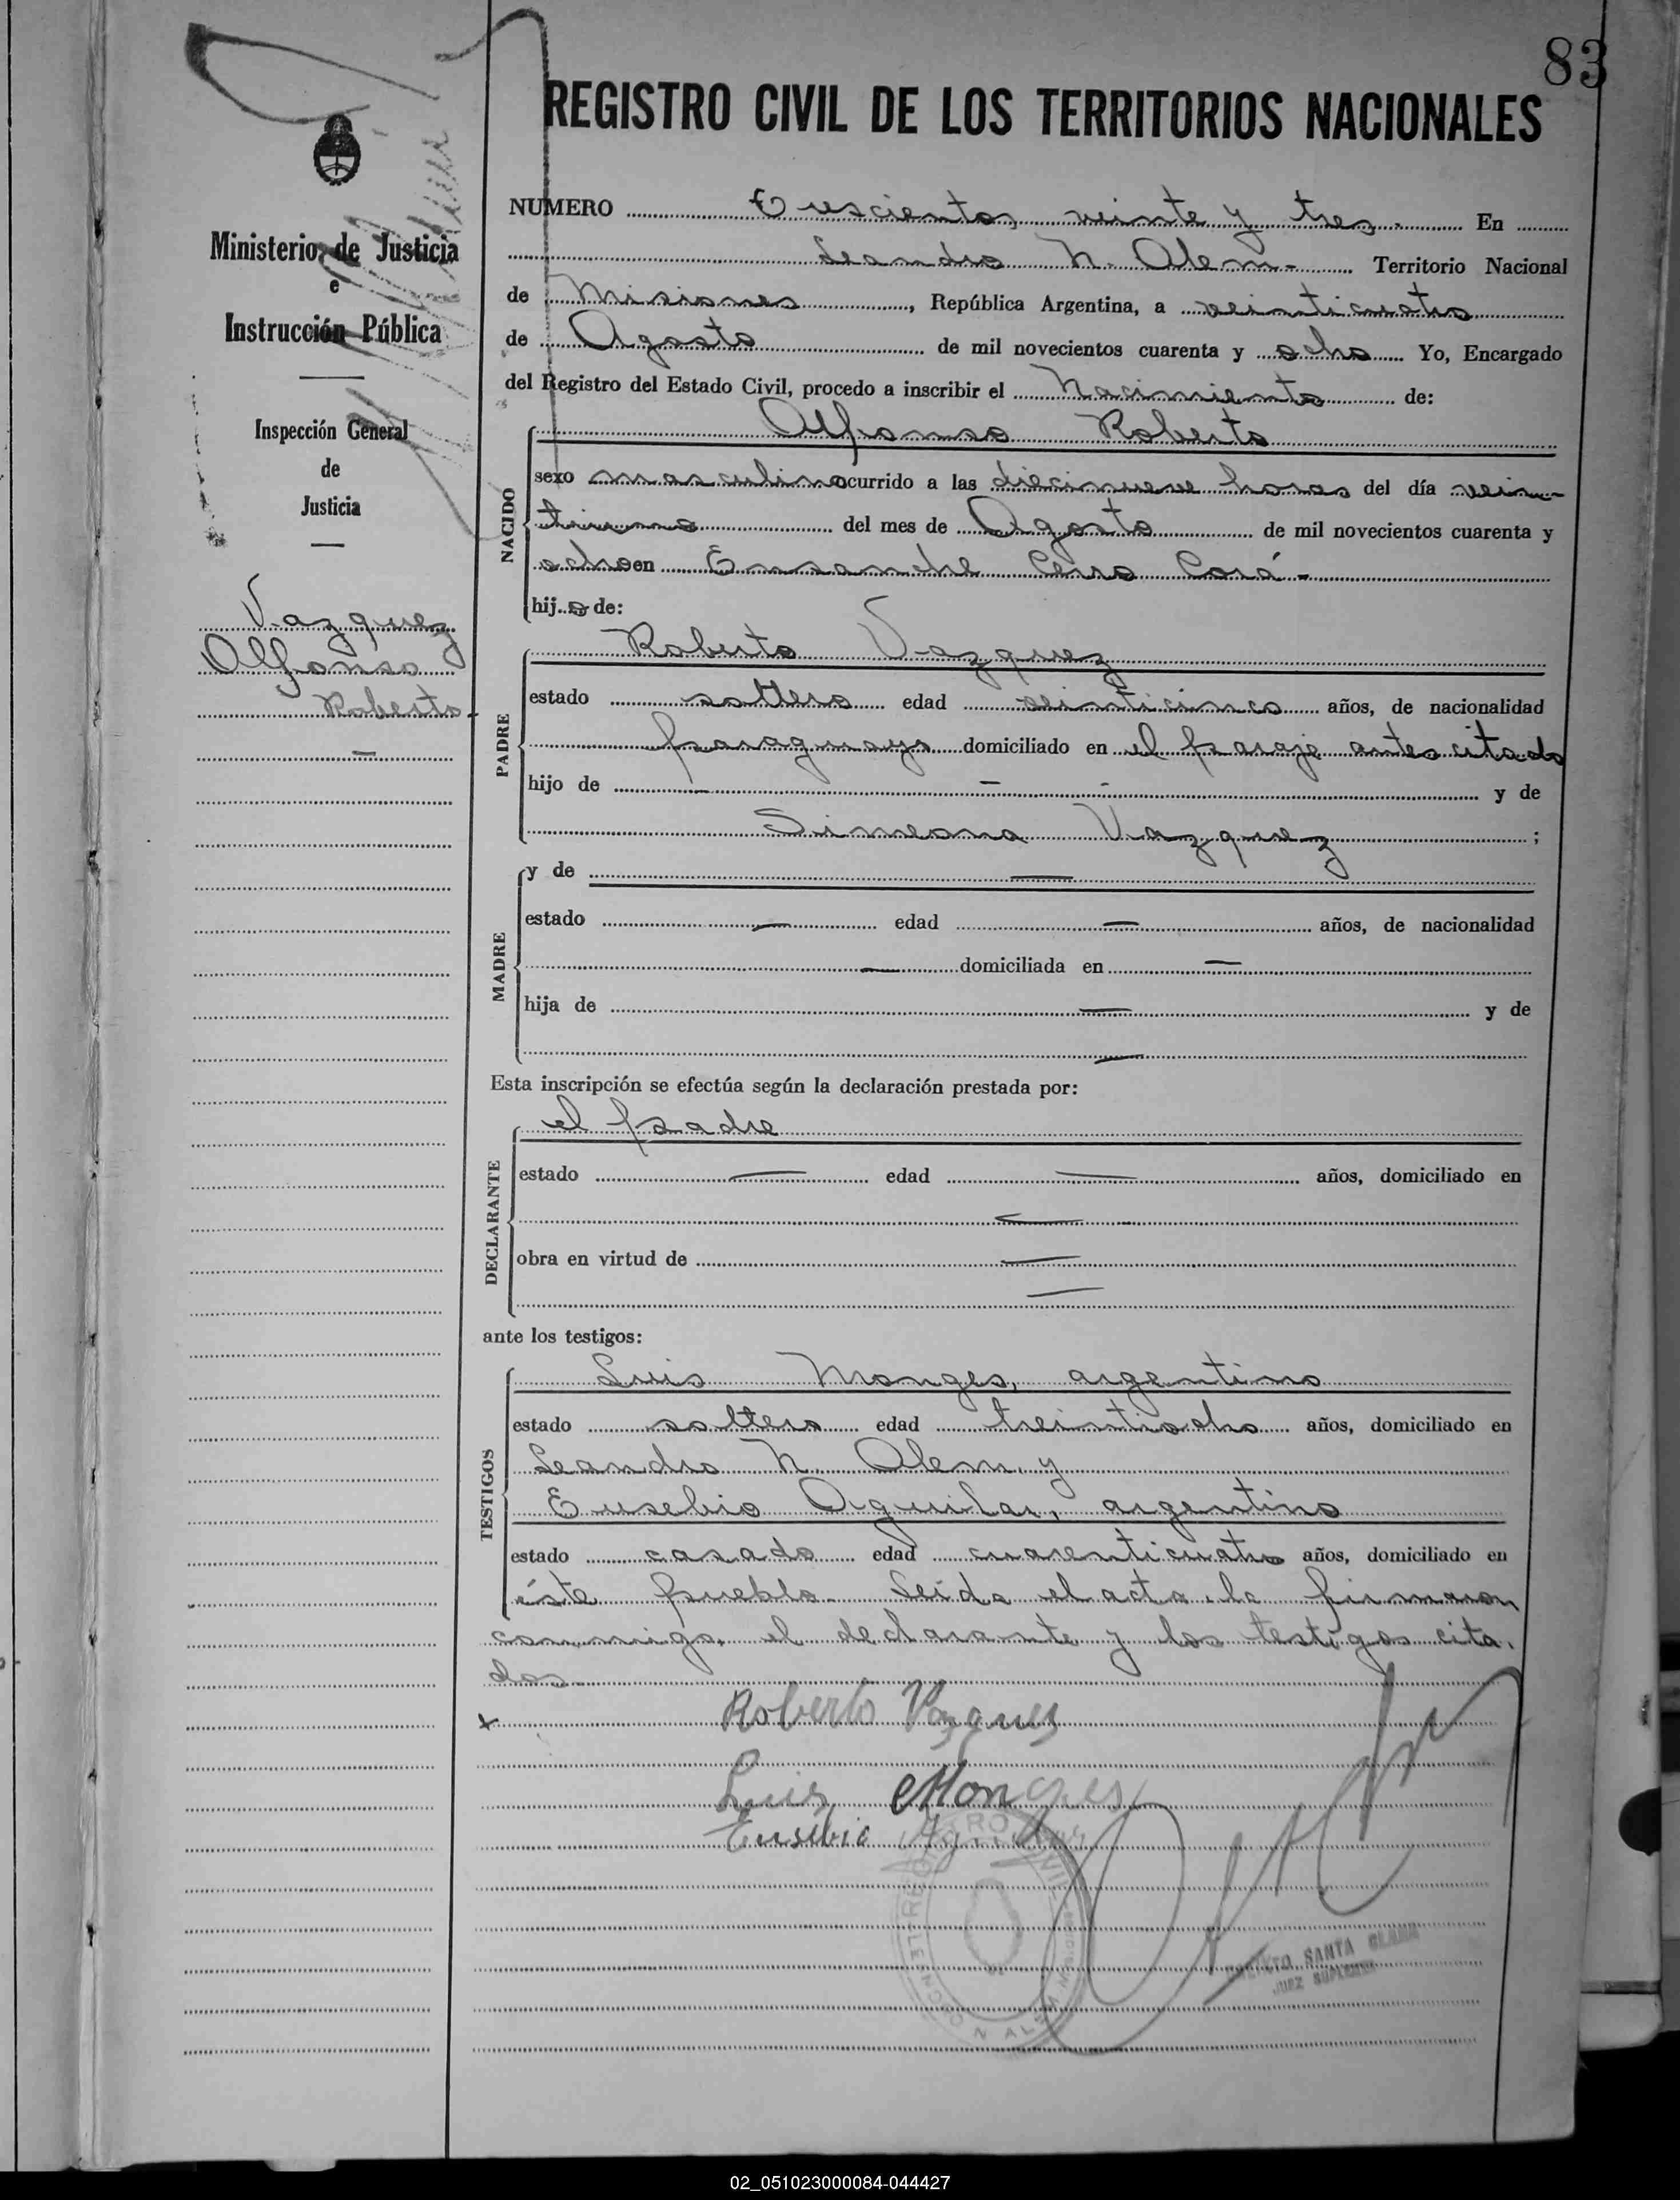 83
REGISTRO CIVIL DE LOS TERRITORIOS NACIONALES
Ministerio de Justicia
e
Instrucción Pública
Inspección General
de
Justicia
Vazquez
Alfonso
Roberto.
—
NUMERO Trescientos veinte y tres.- En
Leandro N. Alem.- Territorio Nacional
de Misiones, República Argentina, a veinticuatro
de Agosto de mil novecientos cuarenta y ocho Yo, Encargado
del Registro del Estado Civil, procedo a inscribir el Nacimiento de:
NACIDO
Alfonso Roberto
sexo masculino ocurrido a las diecinueve horas del día vein-
tiuno del mes de Agosto de mil novecientos cuarenta y
ocho en Ensanche Cerro Corá-
hij o de:
PADRE
Roberto Vazquez
estado soltero edad veinticinco años, de nacionalidad
paraguayo domiciliado en el paraje antes citado
hijo de — — - y de
Simeona Vazquez ;
MADRE
y de —
estado — edad — años, de nacionalidad
— domiciliada en —
hija de — y de
—
Esta inscripción se efectúa según la declaración prestada por:
DECLARANTE
el padre
estado — edad — años, domiciliado en
—
obra en virtud de —
—
ante los testigos:
TESTIGOS
Luis Monges, argentino
estado soltero edad treintiocho años, domiciliado en
Leandro N. Alem y
Eusebio Aguilar, argentino
estado casado edad cuarenticuatro años, domiciliado en
éste pueblo. Leída el acta, la firmaron
conmigo, el declarante y los testigos cita.
dos.
x Roberto Vazques
Luis Monges
Eusebio
SANTA CLARA
JUEZ SUPLENTE
02_051023000084-044427